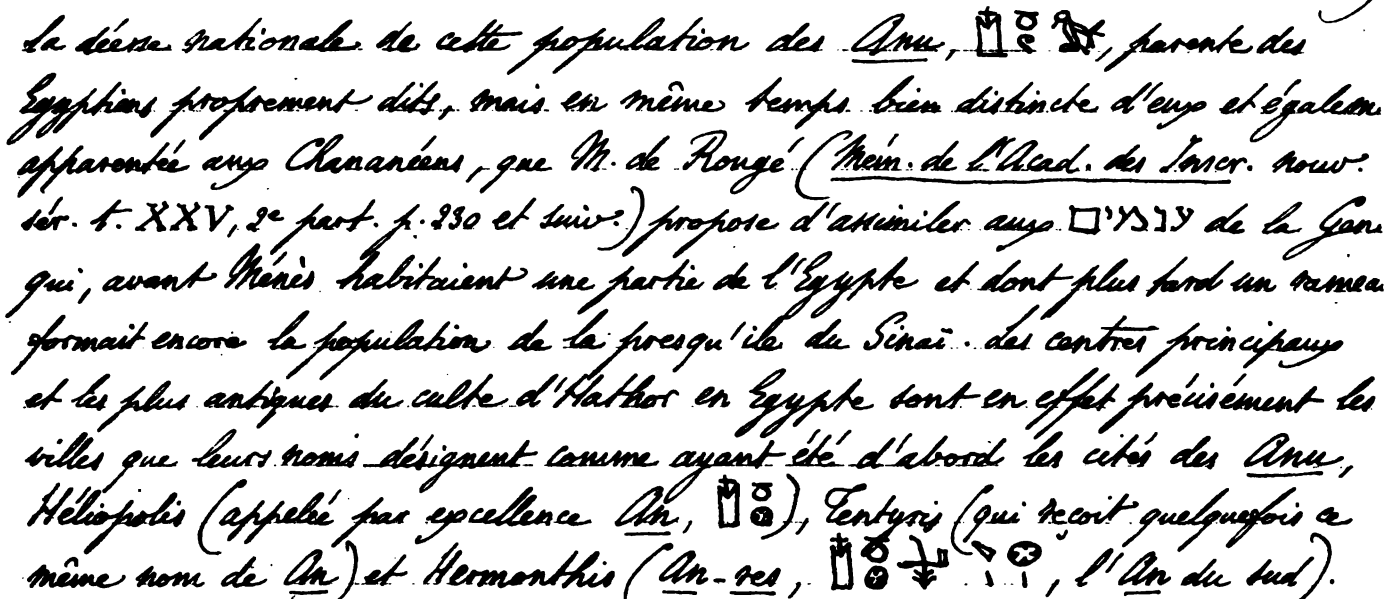 la déesse nationale de cette population des Anu, 𓉺𓏌𓏲𓀀, parente des
Egyptiens proprement dits, mais en même temps bien distincte d'eux et égalem
apparentée aux Chananéens, que M. de Rougé (Mém. de l'Acad. des Inscr. nouv.
sér. t. XXV, 2e part. p. 230 et suiv.) propose d'assimiler aux ענמים de la Gen
qui, avant Ménès habitaient une partie de l'Egypte et dont plus tard un ramea
formait encore la population de la presqu'ile du Sinaï. Les centres principaux
et les plus antiques du culte d'Hathor en Egypte sont en effet précisément les
villes que leurs noms désignent comme ayant été d'abord les cités des Anu,
Héliopolis (appelée par excellence An, 𓉺𓏌𓊖), Tentyris (qui reçoit quelquefois ce
même nom de An) et Hermonthis (An-res, 𓉺𓏌𓊖, l'An du sud).